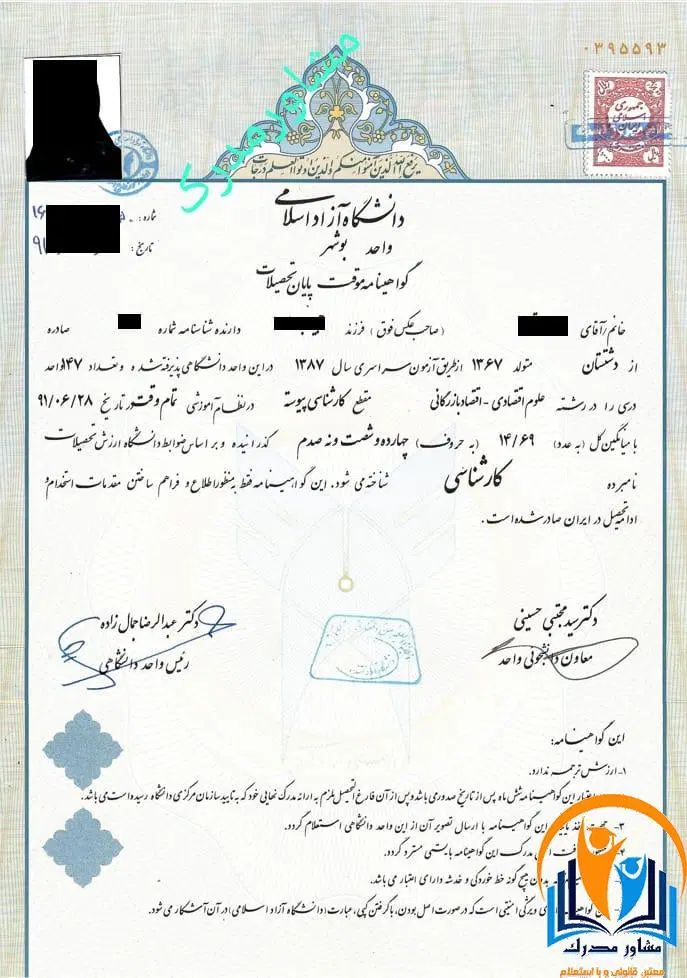 ۰۳۹۵۵۹۳
مشاور مدرک
جمهوری
اسلامی
ایران
یرفع الله الذین آمنوا منکم والذین اوتوا العلم درجات
دانشگاه آزاد اسلامی
واحد بوشهر
گواهینامه موقت پایان تحصیلات
شماره:
تاریخ:
خانم/آقای (صاحب عکس فوق) فرزند دارنده شناسنامه شماره صادره
از دشتستان متولد ۱۳۶۷ از طریق آزمون سراسری سال ۱۳۸۷ در این واحد دانشگاهی پذیرفته شده و تعداد ۱۴۷ واحد
درسی را در رشته علوم اقتصادی -اقتصاد بازرگانی مقطع کارشناسی پیوسته در نظام آموزشی تمام وقت در تاریخ ۹۱/۰۶/۲۸
با میانگین کل (به عدد) ۱۴/۶۹ (به حروف) چهارده و شصت و نه صدم گذرانیده و بر اساس ضوابط دانشگاه ارزش تحصیلات
نامبرده کارشناسی شناخته می شود. این گواهینامه فقط به منظور اطلاع و فراهم ساختن مقدمات استخدام و
ادامه تحصیل در ایران صادر شده است.
دکتر سید مجتبی حسینی
معاون دانشجوئی واحد
دکتر عبدالرضا جمال زاده
رئیس واحد دانشگاهی
این گواهینامه:
۱- ارزش ترجمه ندارد.
اعتبار این گواهینامه شش ماه پس از تاریخ صدور می باشد و پس از آن فارغ التحصیل ملزم به ارائه مدرک نهایی خود که به تایید سازمان مرکزی دانشگاه رسیده است می باشد.
۳- این گواهینامه با ارسال تصویر آن از این واحد دانشگاهی استعلام گردد.
مدرک این گواهینامه بایستی مسترد گردد.
بدون هیچ گونه خط خوردگی و خدشه دارای اعتبار می باشد.
گواهینامه ویژگی امنیتی است که در صورت اصل بودن، با گرفتن کپی، عبارت (دانشگاه آزاد اسلامی) در آن آشکار می شود.
مشاور مدرک
معتبر، قانونی و با استعلام